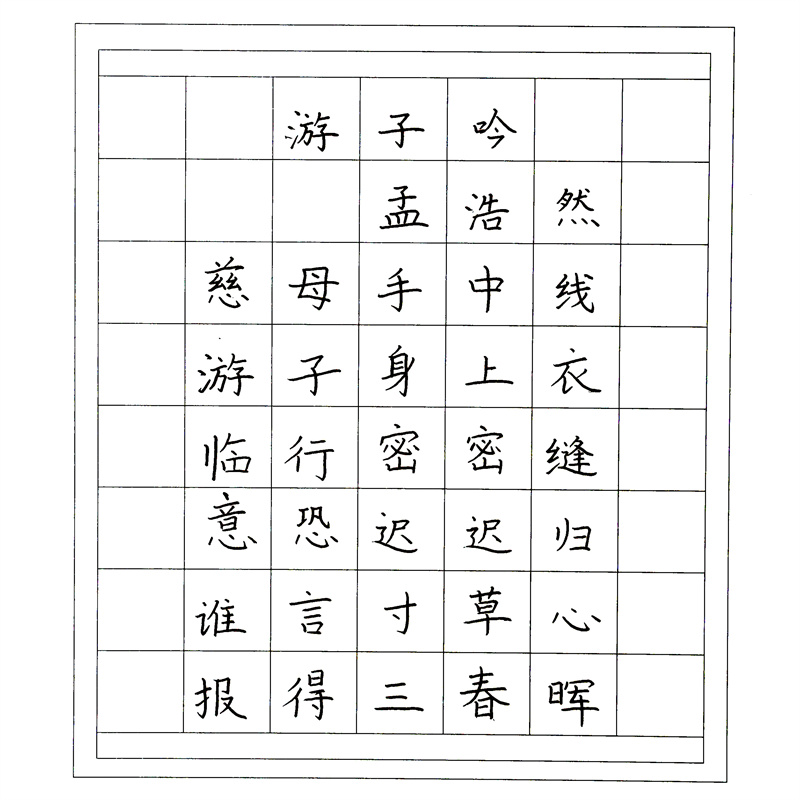 游子吟
孟浩然
慈母手中线
游子身上衣
临行密密缝
意恐迟迟归
谁言寸草心
报得三春晖